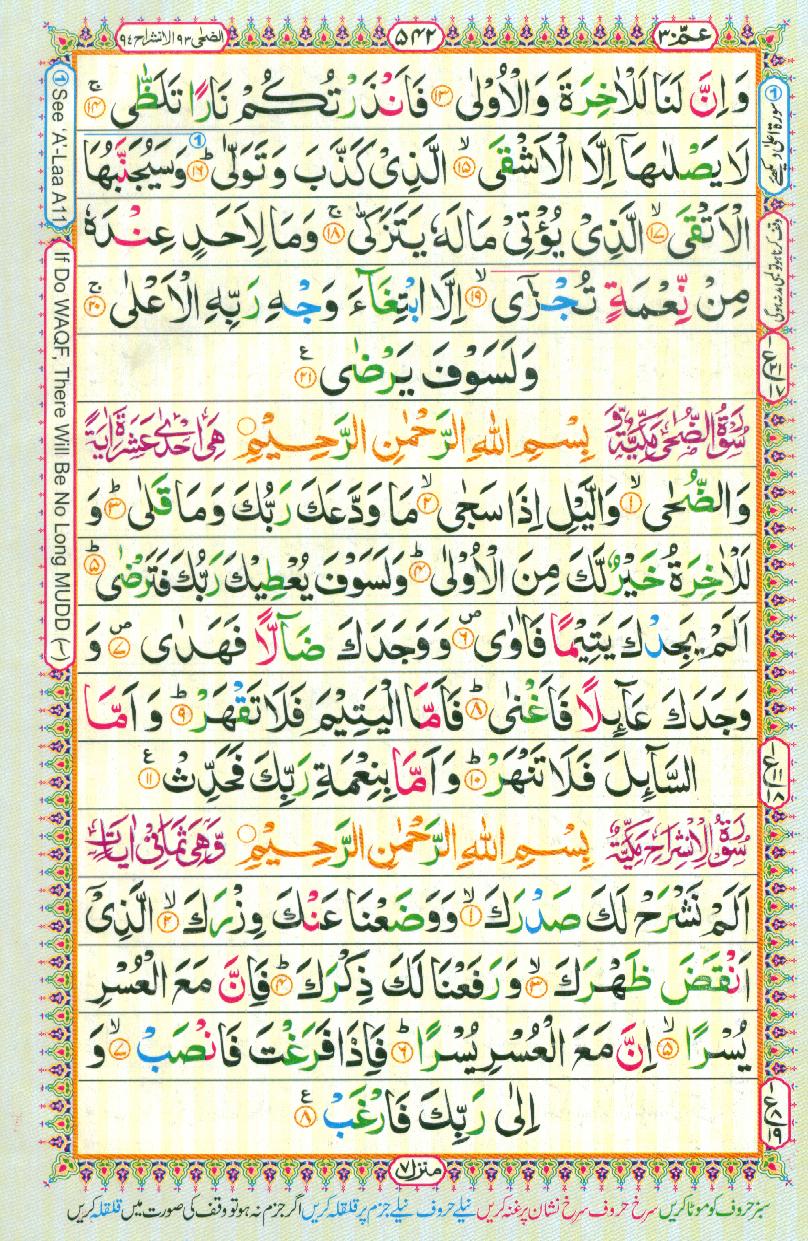 عمّ ۳۰
۵۴۲
الضحٰی ۹۳ الانشراح ۹۴
وَ اِنَّ لَنَا لَلْاٰخِرَةَ وَالْاُوْلٰى ۝۱۳ فَاَنْذَرْتُكُمْ نَارًا تَلَظّٰى ۝۱۴ ج
لَا يَصْلٰىهَاۤ اِلَّا الْاَشْقَى ۝۱۵ ۙ الَّذِىْ كَذَّبَ وَ تَوَلّٰى ۝۱۶ ؕ ① وَ سَيُجَنَّبُهَا
الْاَتْقَى ۝۱۷ ۙ الَّذِىْ يُؤْتِىْ مَالَهٗ يَتَزَكّٰى ۝۱۸ ۚ وَمَا لِاَحَدٍ عِنْدَهٗ
مِنْ نِّعْمَةٍ تُجْزٰٓى ۝۱۹ ۙ اِلَّا ابْتِغَآءَ وَجْهِ رَبِّهِ الْاَعْلٰى ۝۲۰ ۚ
وَ لَسَوْفَ يَرْضٰى ۝۲۱ ع
سُوْرَةُ الضُّحٰى مَكِّيَّةٌ وَّ بِسْمِ اللّٰهِ الرَّحْمٰنِ الرَّحِيْمِ ۝ هِىَ اِحْدٰى عَشْرَةَ اٰيَةً
وَالضُّحٰى ۝۱ ۙ وَالَّيْلِ اِذَا سَجٰى ۝۲ ۙ مَا وَدَّعَكَ رَبُّكَ وَمَا قَلٰى ۝۳ ؕ وَ
لَلْاٰخِرَةُ خَيْرٌ لَّكَ مِنَ الْاُوْلٰى ۝۴ ؕ وَلَسَوْفَ يُعْطِيْكَ رَبُّكَ فَتَرْضٰى ۝۵ ؕ
اَلَمْ يَجِدْكَ يَتِيْمًا فَاٰوٰى ۝۶ ص وَ وَجَدَكَ ضَآلًّا فَهَدٰى ۝۷ ص وَ
وَجَدَكَ عَآئِلًا فَاَغْنٰى ۝۸ ؕ فَاَمَّا الْيَتِيْمَ فَلَا تَقْهَرْ ۝۹ ؕ وَ اَمَّا
السَّآئِلَ فَلَا تَنْهَرْ ۝۱۰ ؕ وَ اَمَّا بِنِعْمَةِ رَبِّكَ فَحَدِّثْ ۝۱۱ ع
سُوْرَةُ الْاِنْشِرَاحِ مَكِّيَّةٌ بِسْمِ اللّٰهِ الرَّحْمٰنِ الرَّحِيْمِ ۝ وَّهِىَ ثَمَانِىْ اٰيَاتٍ
اَلَمْ نَشْرَحْ لَكَ صَدْرَكَ ۝۱ ۙ وَ وَضَعْنَا عَنْكَ وِزْرَكَ ۝۲ ۙ الَّذِىْۤ
اَنْقَضَ ظَهْرَكَ ۝۳ ۙ وَ رَفَعْنَا لَكَ ذِكْرَكَ ۝۴ ؕ فَاِنَّ مَعَ الْعُسْرِ
يُسْرًا ۝۵ ۙ اِنَّ مَعَ الْعُسْرِ يُسْرًا ۝۶ ؕ فَاِذَا فَرَغْتَ فَانْصَبْ ۝۷ ۙ وَ
اِلٰى رَبِّكَ فَارْغَبْ ۝۸ ع
منزل ۷
سبز حروف کو موٹا کریں سرخ حروف سرخ نشان پر غنہ کریں نیلے حروف نیلے جزم پر قلقلہ کریں اگر جزم نہ ہو تو وقف کی صورت میں قلقلہ کریں
① See 'A'-Laa A11
If Do WAQF, There Will Be No Long MUDD (~)
① سورۃ اعلیٰ دیکھیے